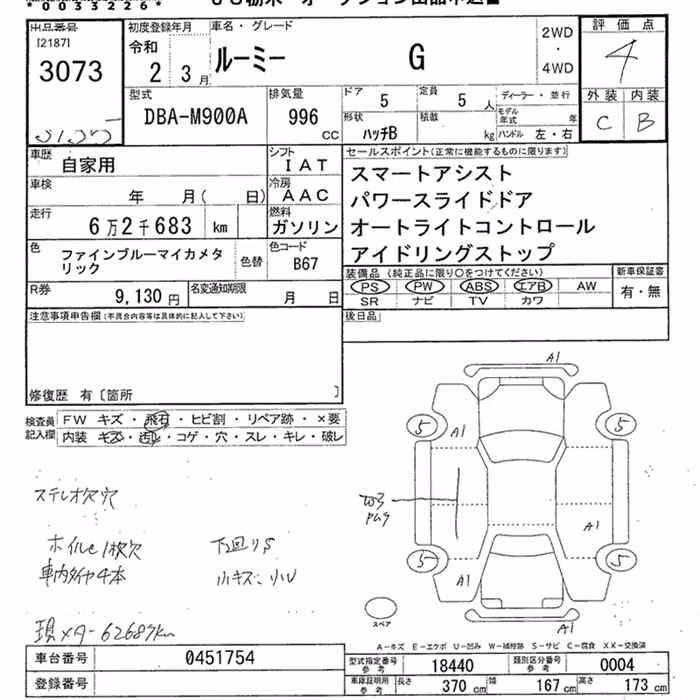 *0033226*
出品番号
[2187]
3073
初度登録年月
令和
2 3月
車名・グレード
ルーミー G
2WD
・
4WD
評価点
4
外装 内装
C B
型式
DBA-M900A
排気量
996
CC
ドア
5
定員
5 人
形状
ハッチB
積載
kg
ディーラー・並行
モデル年式 年
ハンドル 左・右
車歴
自家用
シフト
IAT
車検
年 月( 日)
冷房
AAC
走行
6万2千683 km
燃料
ガソリン
色
ファインブルーマイカメタリック
色替
色コード
B67
R券
9,130円
名変通知期限
月 日
セールスポイント(正常に機能するものに限ります)
スマートアシスト
パワースライドドア
オートライトコントロール
アイドリングストップ
装備品(純正品に限り○をつけてください)
PS PW ABS エアB AW
SR ナビ TV カワ
新車保証書
有・無
後日品
注意事項申告欄(不具合内容等は具体的に記入して下さい)
修復歴 有〔箇所 〕
検査員記入欄
FW キズ・飛石・ヒビ割・リペア跡・×要
内装 キズ・汚レ・コゲ・穴・スレ・キレ・破レ
ステレオ欠穴
車内タイヤ4本
下廻りS
小キズ、小U
現メター62687km
A1
5
5
A1
W3
A1
5
5
A1
A1
スペア
A-キズ E-エクボ U-凹み W-補修跡 S-サビ C-腐食 XX-交換済
車台番号 0451754
登録番号
型式指定番号 参考 18440
類別区分番号 参考 0004
車庫証明用 参考 長さ 370cm 幅 167cm 高さ 173cm